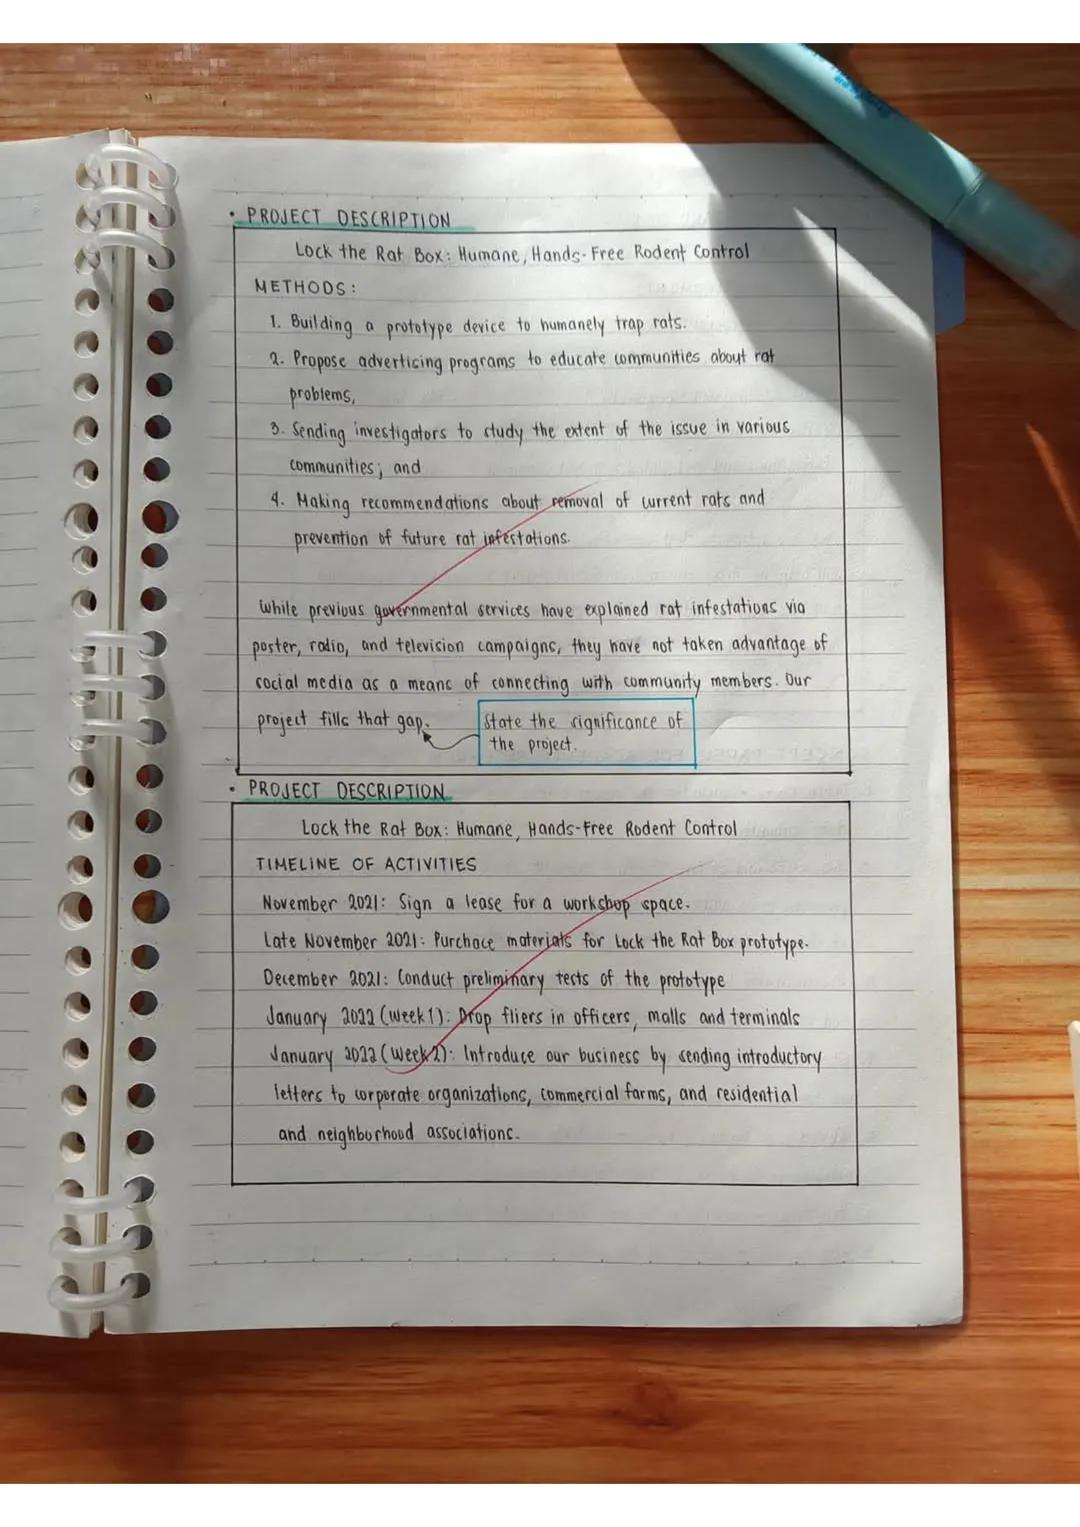 • PROJECT DESCRIPTION
Lock the Rat Box: Humane, Hands-Free Rodent Control
METHODS:
1. Building a prototype device to humanely trap rats.
2. Propose advertising programs to educate communities about rat
problems,
3. Sending investigators to study the extent of the issue in various
communities; and
4. Making recommendations about removal of current rats and
prevention of future rat infestations.
While previous governmental services have explained rat infestations via
poster, radio, and television campaigns, they have not taken advantage of
social media as a means of connecting with community members. Our
project fills that gap.
State the significance of
the project.
• PROJECT DESCRIPTION
Lock the Rat Box: Humane, Hands-Free Rodent Control
TIMELINE OF ACTIVITIES
November 2021: Sign a lease for a workshop space.
Late November 2021: Purchace materials for Lock the Rat Box prototype.
December 2021: Conduct preliminary tests of the prototype
January 2022 (week 1): Drop fliers in officers, malls and terminals
January 2022 (week 2): Introduce our business by sending introductory
letters to corporate organizations, commercial farms, and residential
and neighborhood associations.